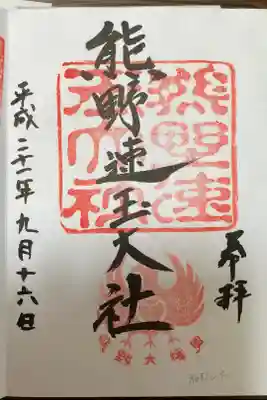 奉拝
熊野速玉大社
平成二十一年九月十六日
熊野速
玉大社